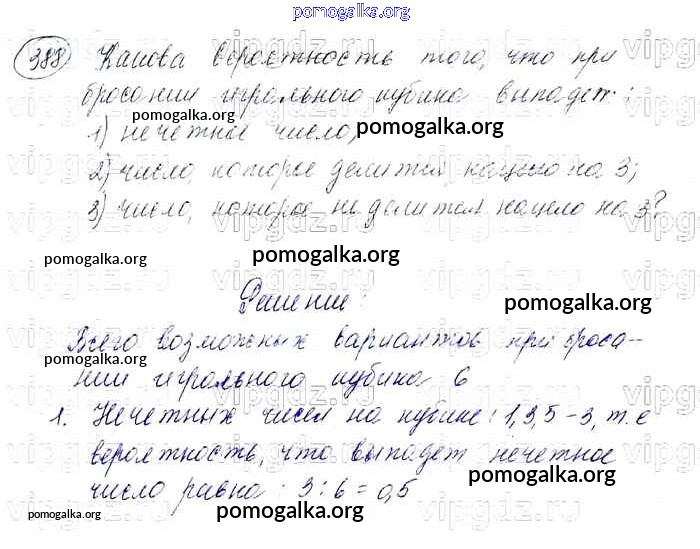 pomogalka.org
388 Какова вероятность того, что при
бросании игрального кубика выпадет:
1) нечетное число, pomogalka.org
2) число, которое делится нацело на 3;
3) число, которое не делится нацело на 3?
pomogalka.org pomogalka.org
Решение:
pomogalka.org
Всего возможных вариантов при броса-
pomogalka.org
нии игрального кубика 6
1. Нечетных чисел на кубике: 1,3,5 – 3, т.е
вероятность, что выпадет нечетное
pomogalka.org
число равна: 3:6=0,5
pomogalka.org pomogalka.org pomogalka.org
vipgdz.ru